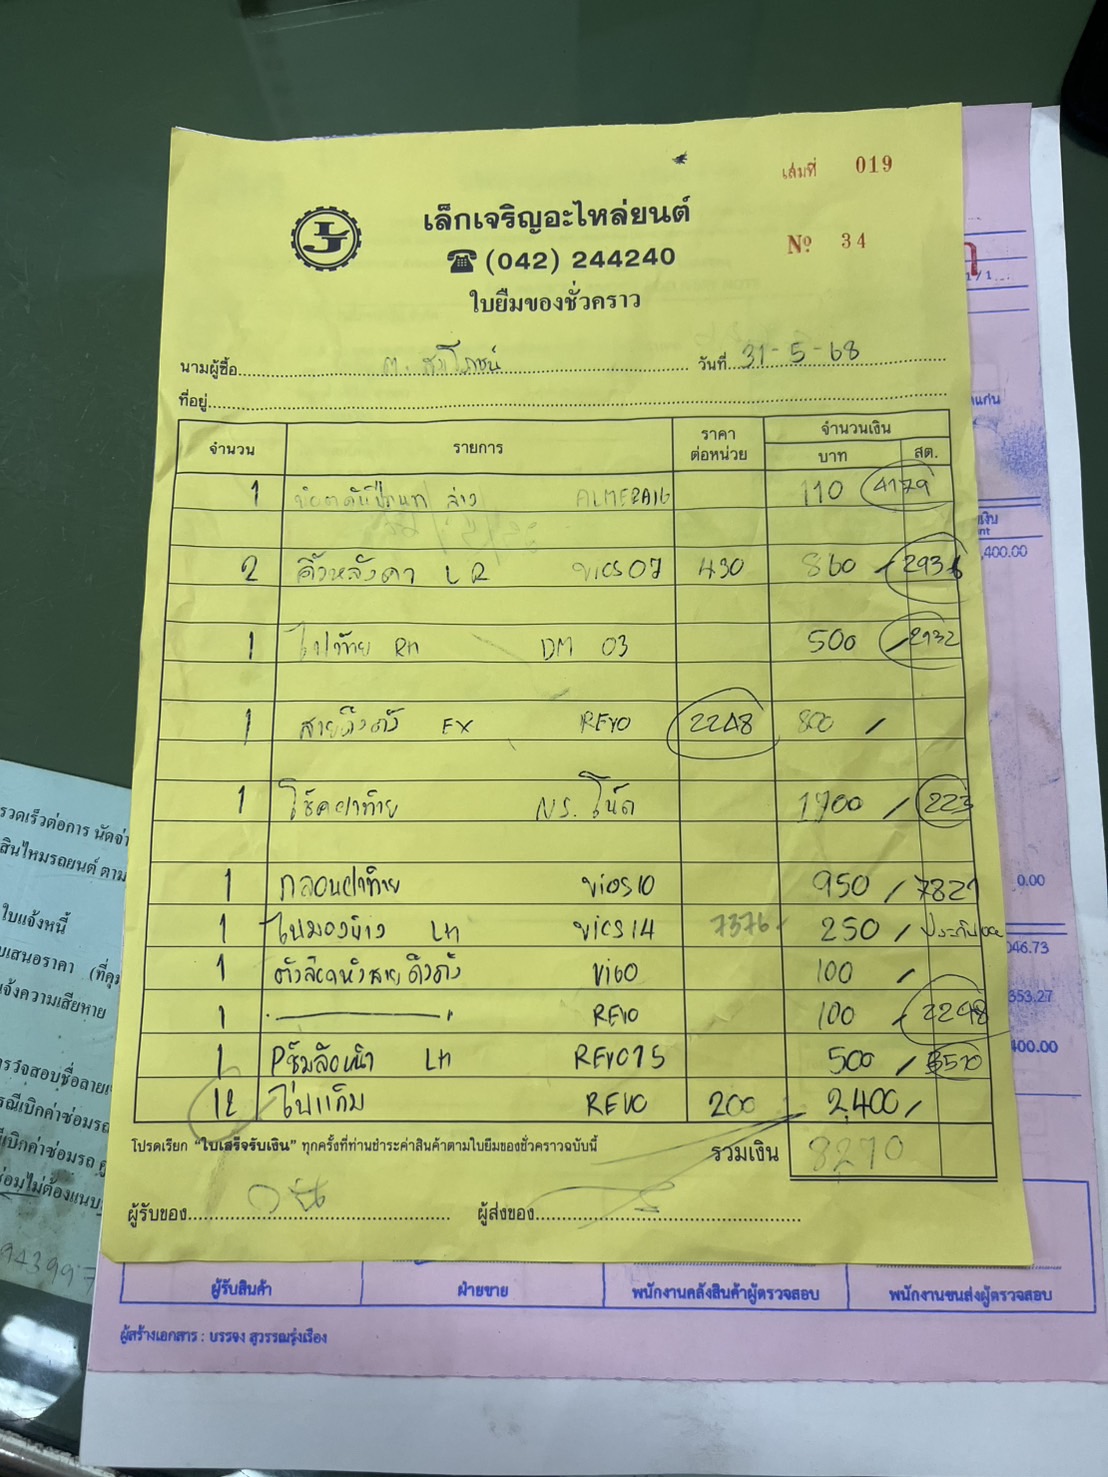 เล่มที่ 019
เล็กเจริญอะไหล่ยนต์
LJ
(042) 244240
Nº 34
ใบยืมของชั่วคราว
นามผู้ซื้อ วันที่ 31-5-68
ที่อยู่
จำนวน รายการ ราคาต่อหน่วย จำนวนเงิน
บาท สต.
1 ล่าง ALMERA16 110 4179
2 คิ้วหลังคา LR vios07 430 860 293
1 ไฟท้าย RH DM 03 500 2132
1 สายดึงดัง EX REVO 2248 800
1 โช้คฝาท้าย NS. โน๊ต 1700 223
1 กลอนฝาท้าย vios10 950 7821
1 ไฟมองข้าง LH vios14 7376 250
1 สายดึงดัง vigo 100
1 " REVO 100 2248
1 Pซุ้มล้อหน้า LH REVO15 500 3570
12 ไฟแก้ม REVO 200 2,400
โปรดเรียก "ใบเสร็จรับเงิน" ทุกครั้งที่ท่านชำระค่าสินค้าตามใบยืมของชั่วคราวฉบับนี้ รวมเงิน 8270
ผู้รับของ ผู้ส่งของ
ผู้รับสินค้า ฝ่ายขาย พนักงานคลังสินค้าผู้ตรวจสอบ พนักงานขนส่งผู้ตรวจสอบ
ผู้สร้างเอกสาร : บรรจง สุวรรณรุ่งเรือง
รวดเร็วต่อการ นัดจ่า
สินไหมรถยนต์ ตาม
ใบแจ้งหนี้
เสนอราคา (ที่คุ
แจ้งความเสียหาย
943997
,400.00
0.00
046.73
353.27
400.00